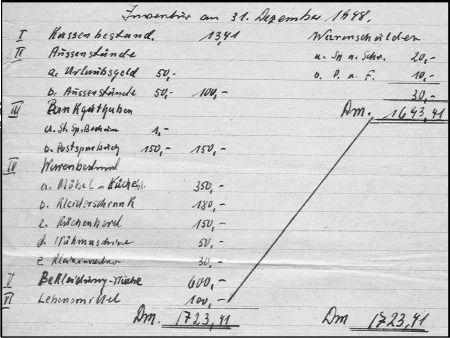 Inventur am 31. Dezember 1948.
I Kassenbestand. 13,41
II Aussenstände
a. Urlaubsgeld 50,-
b. Aussenstände 50,- 100,-
III Bankguthaben
a. St. Sp. Bochum 1,-
b. Postsparbuch 150,- 150,-
IV Warenbestand
a. Möbel - Küchen 350,-
b. Kleiderschrank 180,-
c. Küchenherd 150,-
d. Nähmaschine 50,-
e 30,-
V Bekleidung-Wäsche 600,-
VI Lebensmittel 100,-
Dm. 1723,41
Warenschulden
a. Sp. u. Schr. 20,-
b. P. u. F. 10,-
30,-
Dm. 1693,41
Dm 1723,41